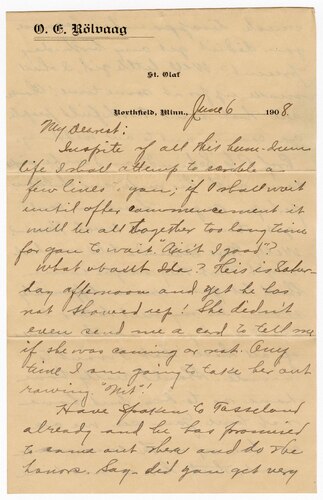 O. E. Rölvaag
St. Olaf
Northfield, Minn., June 6 1908.
My Dearest;
Inspite of all this hum-drum
life I shall attemp to scrible a
few lines to you; if I shall wait
until after commencement it
will be all together too long time
for you to wait. "Ain't I good"?
What about Ida? This is Satur-
day afternoon and yet he has
not showed up! She didn't
even send me a card to tell me
if she was coming or not. Any
time I am going to take her out
rowing "Nit"!
Have spoken to Tasseland
already and he has promised
to come out there and do the
honors. Say - did you get very